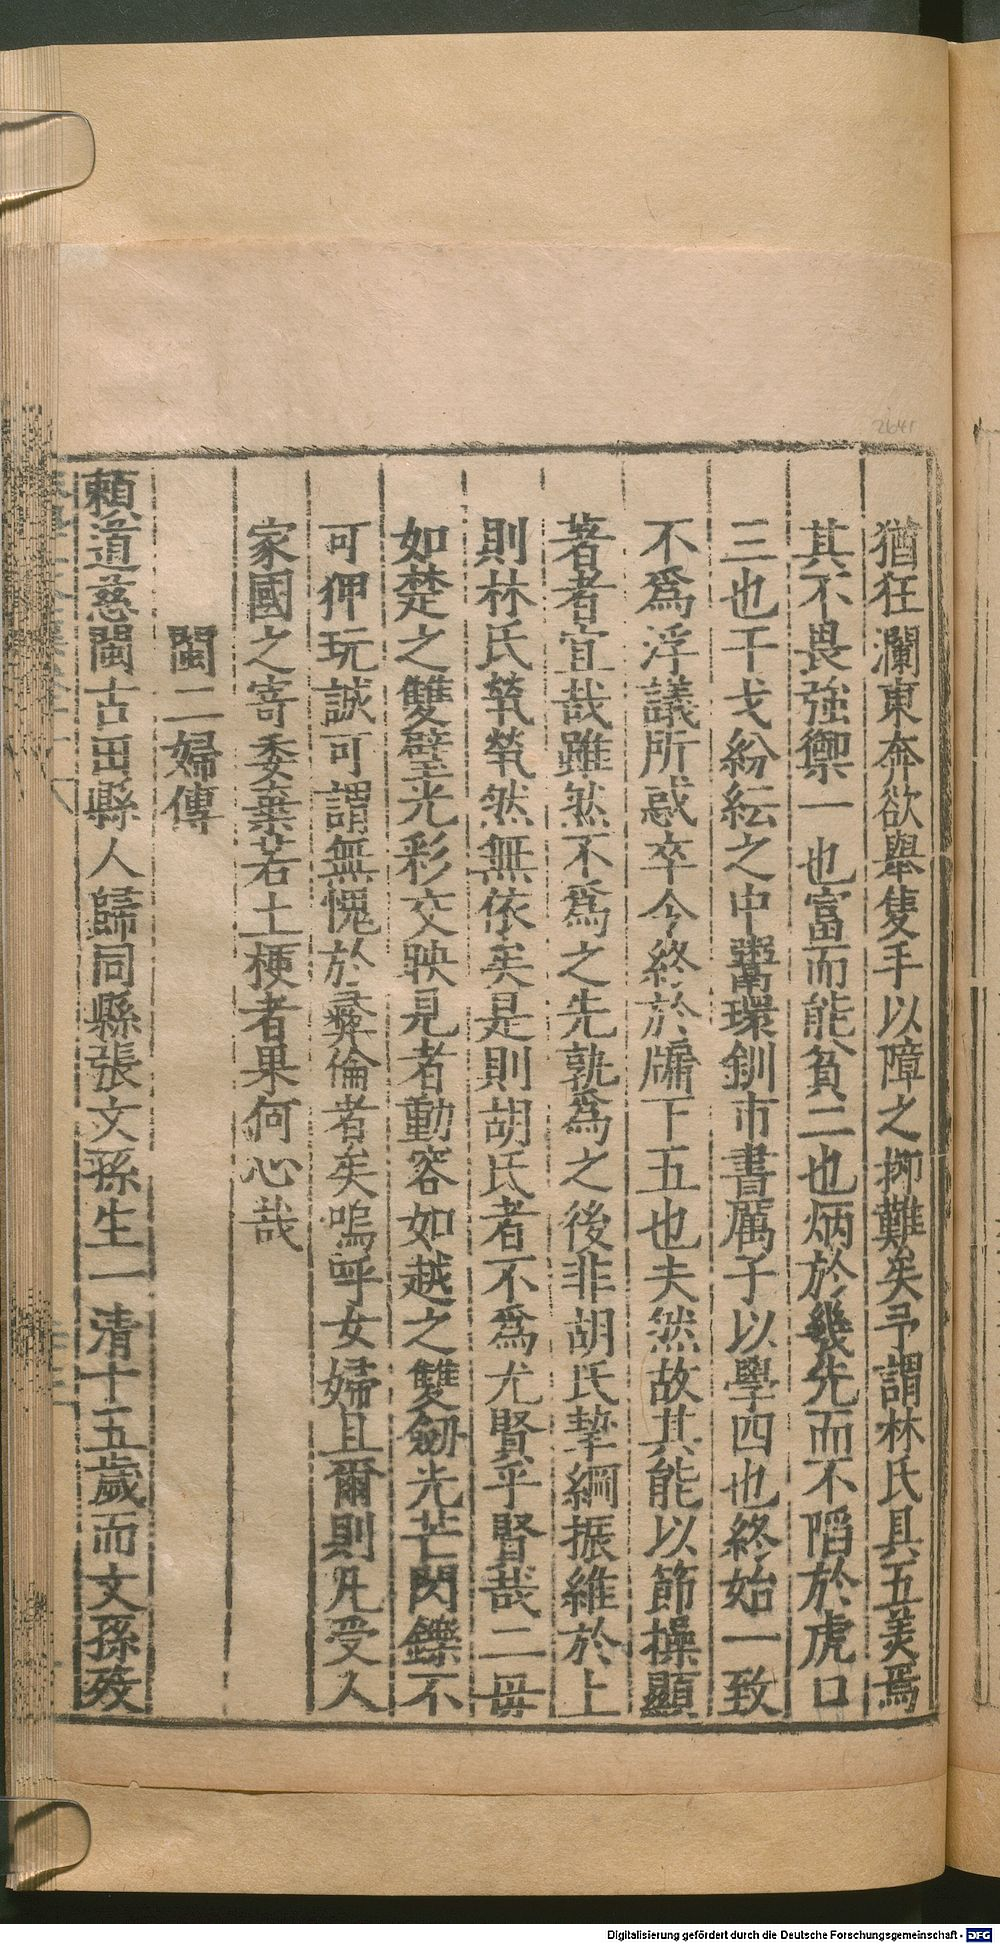 猶狂瀾東奔欲舉隻手以障之抑難矣予謂林氏具五美焉
其不畏強禦一也富而能貧二也炳於幾先而不陷於虎口
三也干戈紛紜之中鬻環釧市書厲子以學四也終始一致
不爲浮議所惑卒令終於牖下五也夫然故其能以節操顯
著者宜哉雖然不爲之先孰爲之後非胡氏挈綱振維於上
則林氏煢煢然無依矣是則胡氏者不爲尤賢乎賢哉二毋
如楚之雙璧光彩交映見者動容如越之雙劒光芒閃鑠不
可狎玩誠可謂無愧於彛倫者矣嗚呼女婦且爾則凡受人
家國之寄委棄若土梗者果何心哉
閩二婦傳
賴道慈閩古田縣人歸同縣張文孫生一清十五歲而文孫歿
2641
Digitalisierung gefördert durch die Deutsche Forschungsgemeinschaft - DFG